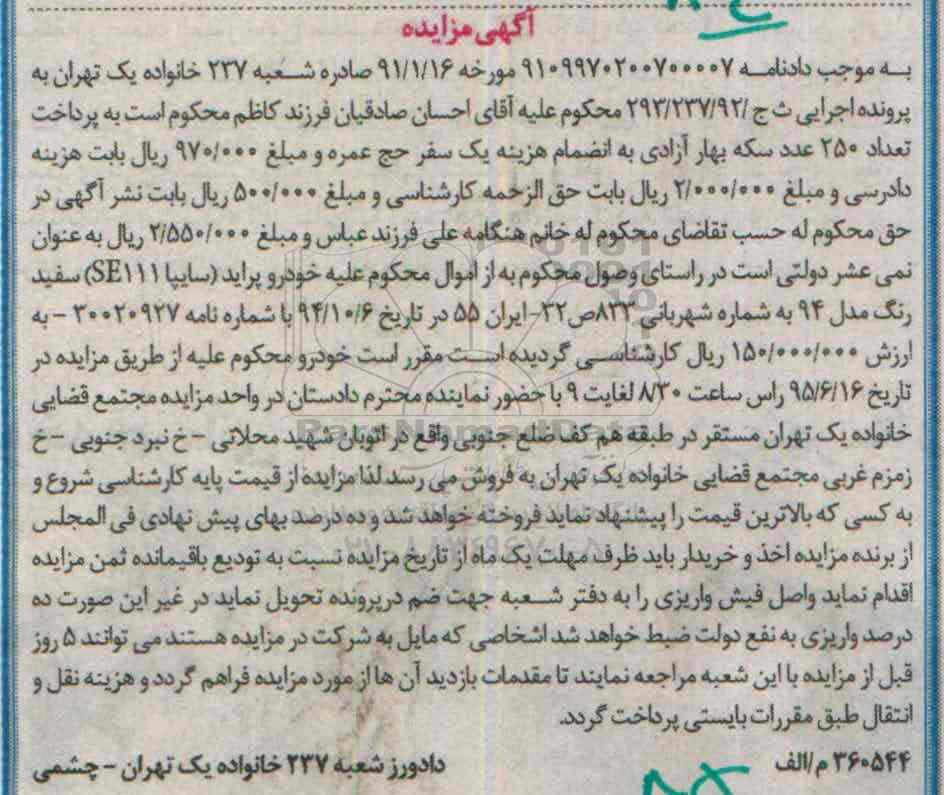 آگهی مزایده
به موجب دادنامه ۹۱۰۹۹۷۰۲۰۰۷۰۰۰۰۷ مورخه ۹۱/۱/۱۶ صادره شعبه ۲۳۷ خانواده یک تهران به
پرونده اجرایی ث ج /۲۹۳/۲۳۷/۹۲ محکوم علیه آقای احسان صادقیان فرزند کاظم محکوم است به پرداخت
تعداد ۲۵۰ عدد سکه بهار آزادی به انضمام هزینه یک سفر حج عمره و مبلغ ۹۷۰/۰۰۰ ریال بابت هزینه
دادرسی و مبلغ ۲/۰۰۰/۰۰۰ ریال بابت حق الزحمه کارشناسی و مبلغ ۵۰۰/۰۰۰ ریال بابت نشر آگهی در
حق محکوم له حسب تقاضای محکوم له خانم هنگامه علی فرزند عباس و مبلغ ۲/۵۵۰/۰۰۰ ریال به عنوان
نمی عشر دولتی است در راستای وصول محکوم به از اموال محکوم علیه خودرو پراید (سایپا SE۱۱۱) سفید
رنگ مدل ۹۴ به شماره شهربانی ۸۲۳ص۳۲-ایران ۵۵ در تاریخ ۹۴/۱۰/۶ با شماره نامه ۳۰۰۲۰۹۲۷ - به
ارزش ۱۵۰/۰۰۰/۰۰۰ ریال کارشناسی گردیده است مقرر است خودرو محکوم علیه از طریق مزایده در
تاریخ ۹۵/۶/۱۶ راس ساعت ۸/۳۰ لغایت ۹ با حضور نماینده محترم دادستان در واحد مزایده مجتمع قضایی
خانواده یک تهران مستقر در طبقه هم کف ضلع جنوبی واقع در اتوبان شهید محلاتی - خ نبرد جنوبی - خ
زمزم غربی مجتمع قضایی خانواده یک تهران به فروش می رسد لذا مزایده از قیمت پایه کارشناسی شروع و
به کسی که بالاترین قیمت را پیشنهاد نماید فروخته خواهد شد و ده درصد بهای پیش نهادی فی المجلس
از برنده مزایده اخذ و خریدار باید ظرف مهلت یک ماه از تاریخ مزایده نسبت به تودیع باقیمانده ثمن مزایده
اقدام نماید واصل فیش واریزی را به دفتر شعبه جهت ضم درپرونده تحویل نماید در غیر این صورت ده
درصد واریزی به نفع دولت ضبط خواهد شد اشخاصی که مایل به شرکت در مزایده هستند می توانند ۵ روز
قبل از مزایده با این شعبه مراجعه نمایند تا مقدمات بازدید آن ها از مورد مزایده فراهم گردد و هزینه نقل و
انتقال طبق مقررات بایستی پرداخت گردد.
۳۶۰۵۴۴ م/الف
دادورز شعبه ۲۳۷ خانواده یک تهران - چشمی
ParsNamadData